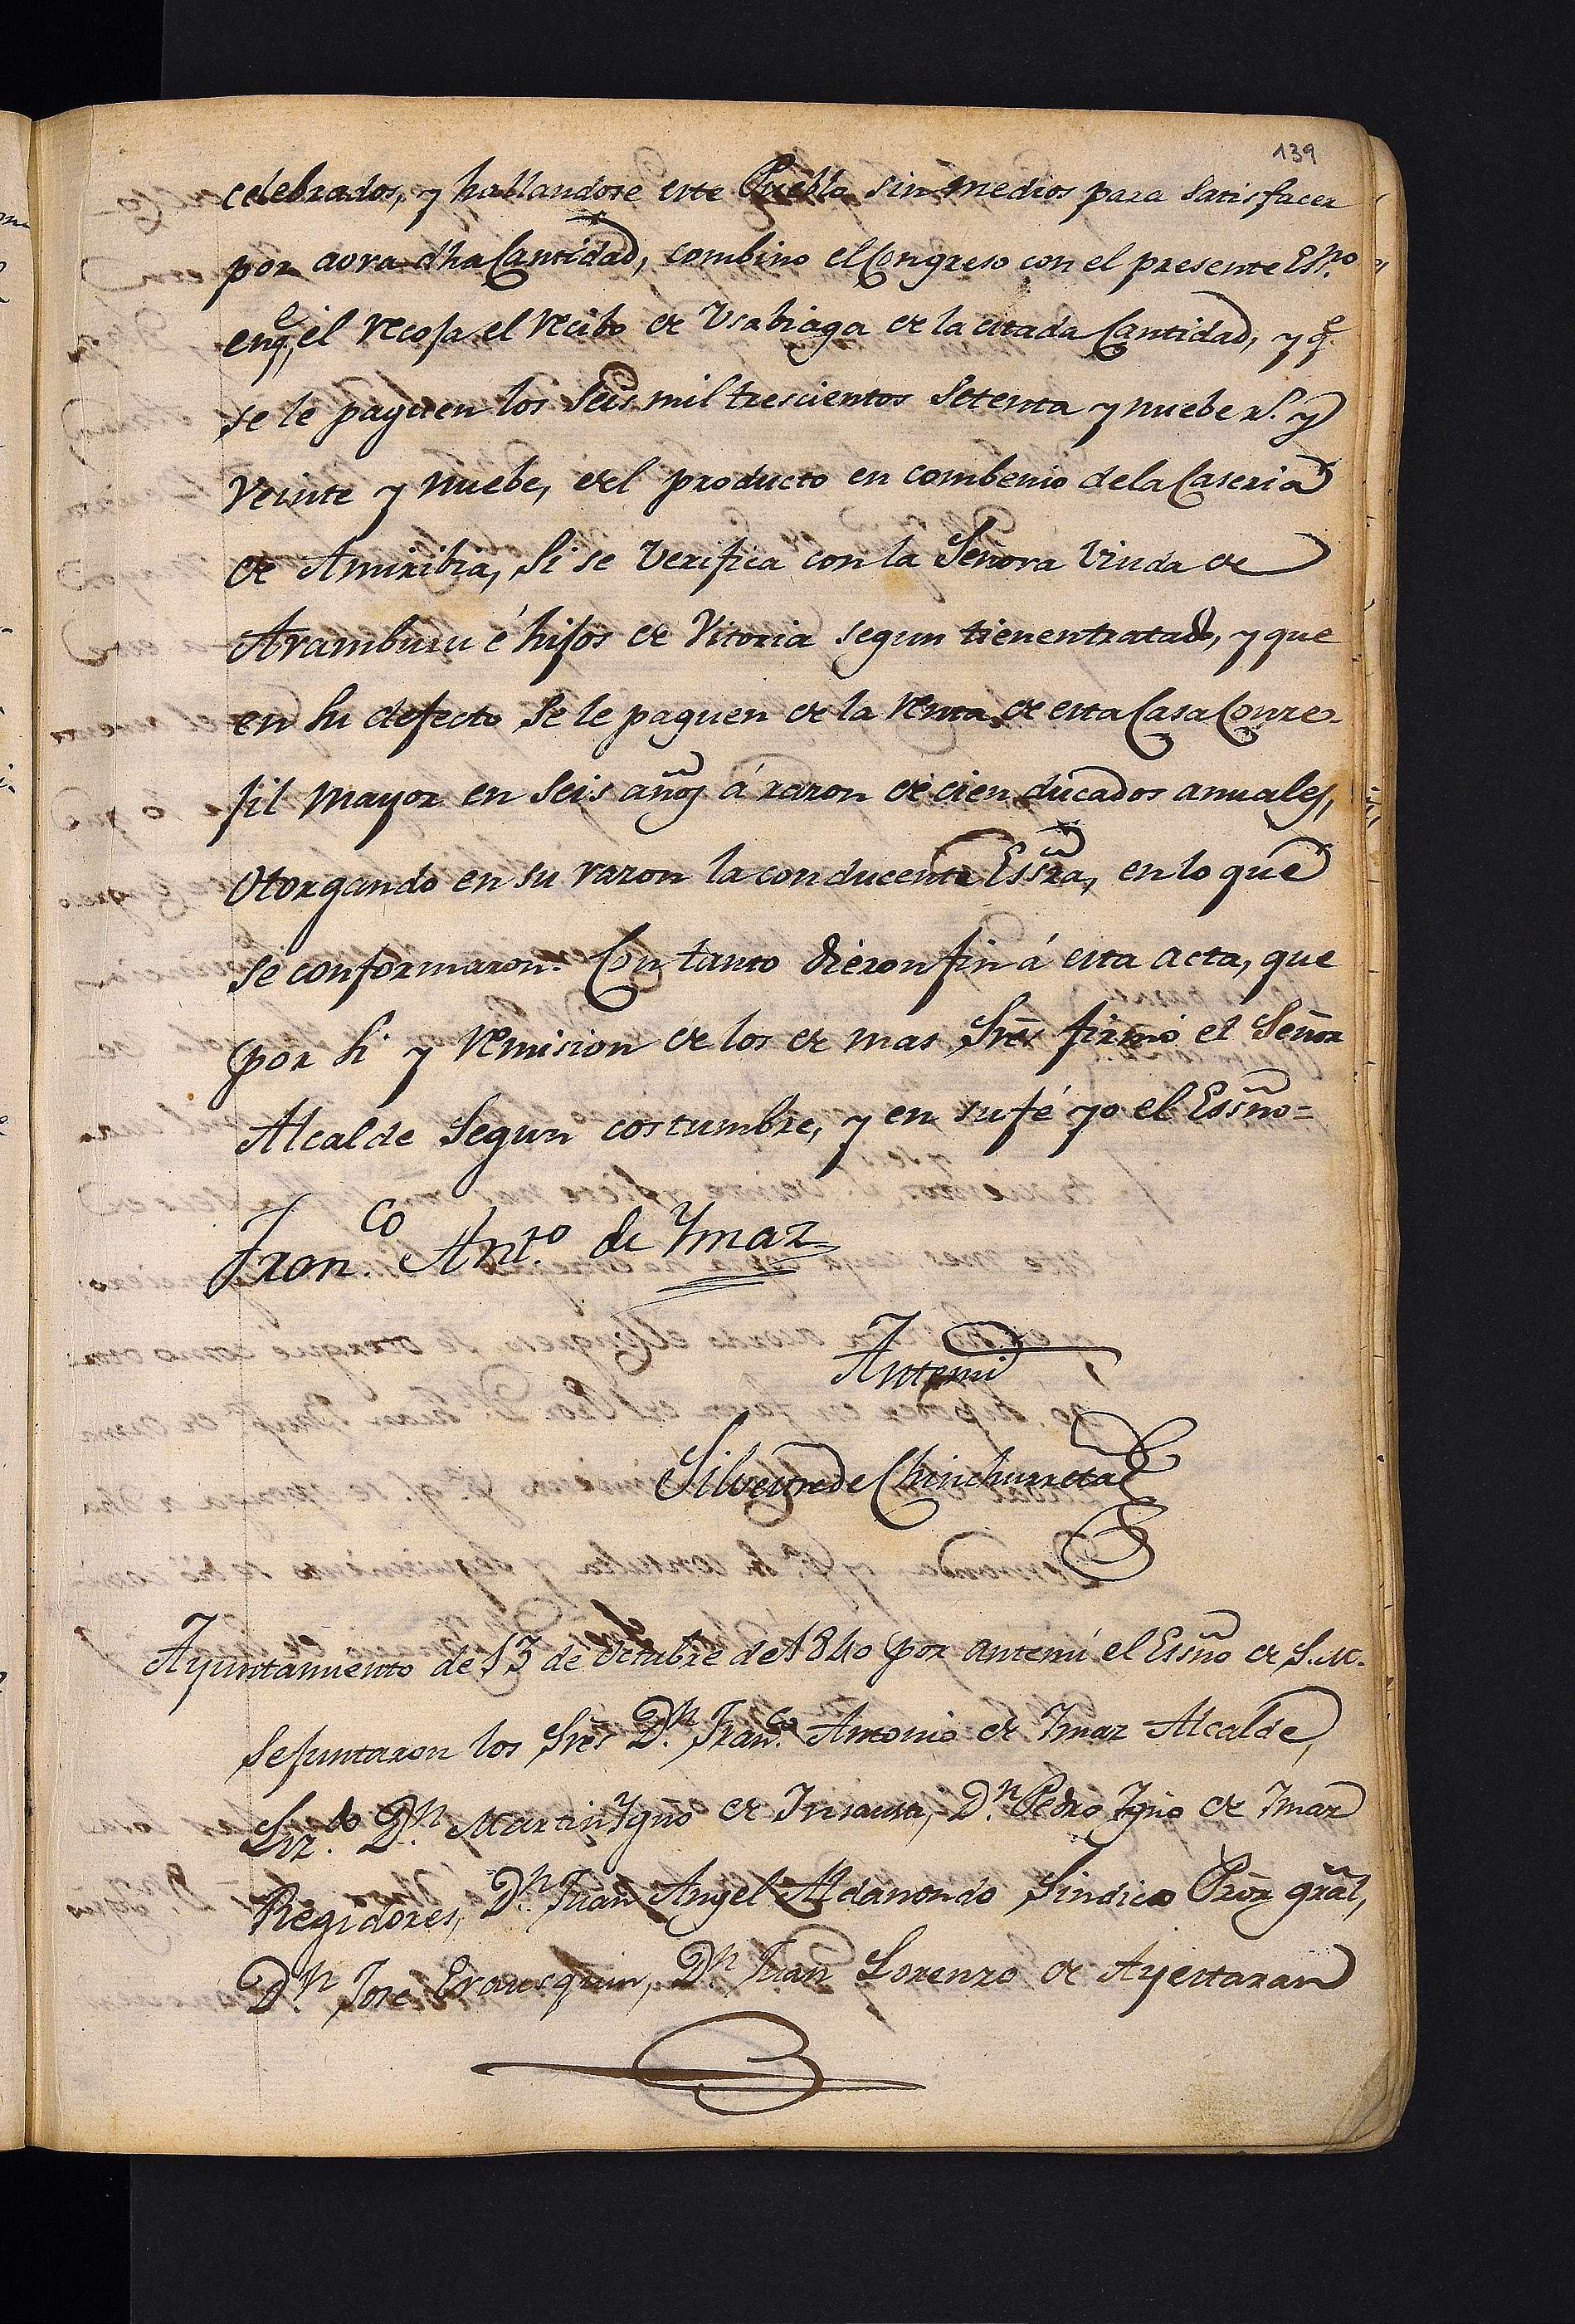 139
celebrados, y hallandose este Puebla sin medios para satisfacer
por aora dha Cantidad, combino el Congreso con el presente Esno.
en qe. el recoja el recibo de Usabiaga de la citada Cantidad, y qe.
se le paguen los Seis mil trescientos Setenta y nuebe rs. y
veinte y nuebe, del producto en combenio de la Caseria
de Amiribia, si se verifica con la Señora Viuda de
Aramburu é hijos de Vitoria segun tienen tratado, y que
en su defecto se le paguen de la renta de esta Casa Conce-
jil mayor en seis años á razon de cien ducados anuales,
otorgando en su razon la conducente Essra, en lo que
se conformaron. Con tanto dieron fin á esta acta, que
por si y remision de los de mas Sres firmó el Señor
Alcalde Segun costumbre, y en su fé yo el Essno=
Fran.co Anto. de Ymaz
Antemi
Silvestre de Chinchurreta
Ayuntamiento de 13 de Octubre de 1840 por antemi el Essno de S.M.
se juntaron los Sres Dn. Franco. Antonio de Imaz Alcalde,
Liz.do Dn. Martin Ygno de Insausti, Dn. Pedro Igno de Imaz
Regidores, Dn. Juan Angel Aldanondo Sindico Pror gral,
Dn. Jose Erausquin, Dn. Juan Lorenzo de Ayestaran